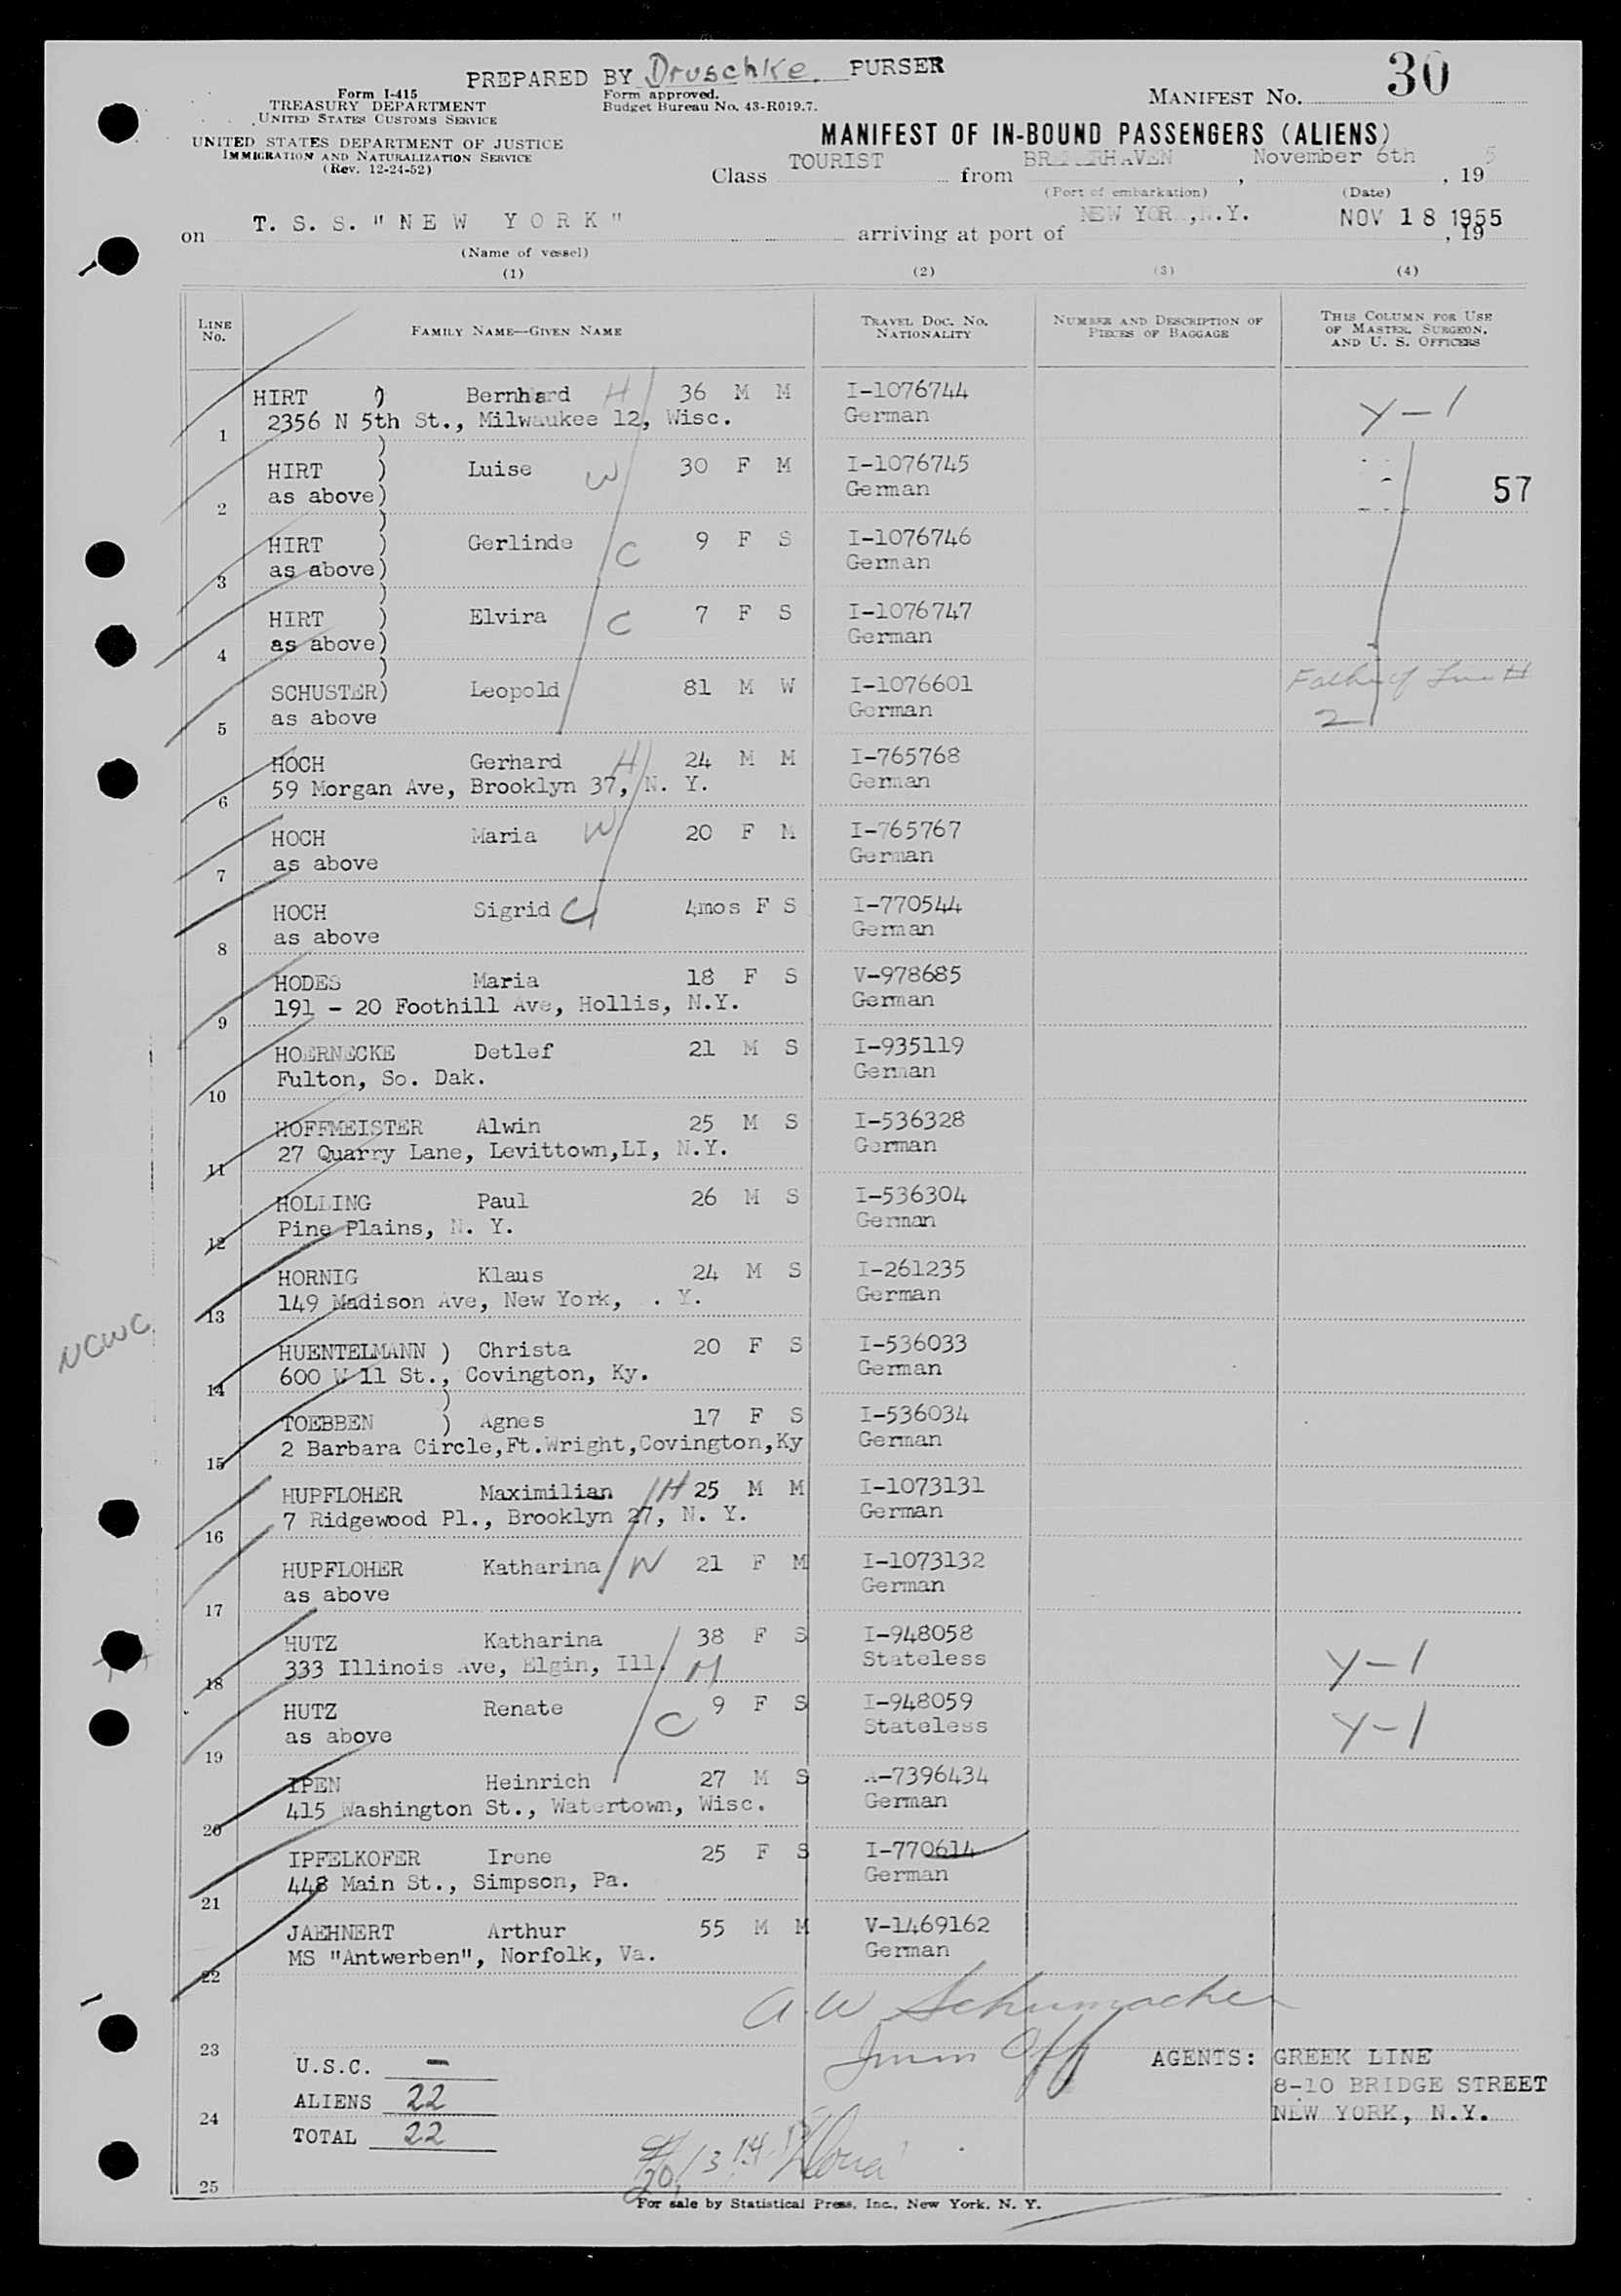 PREPARED BY Druschke. PURSER
30
Form I-415
TREASURY DEPARTMENT
UNITED STATES CUSTOMS SERVICE
Form approved.
Budget Bureau No. 43-R019.7.
MANIFEST No.
UNITED STATES DEPARTMENT OF JUSTICE
IMMIGRATION AND NATURALIZATION SERVICE
(Rev. 12-24-52)
MANIFEST OF IN-BOUND PASSENGERS (ALIENS)
Class TOURIST from BREMERHAVEN, November 6th, 195
(Port of embarkation) (Date)
on T. S. S. "NEW YORK" arriving at port of NEW YORK, N.Y. NOV 18 1955, 19
(Name of vessel)
(1) (2) (3) (4)
LINE No. FAMILY NAME—GIVEN NAME TRAVEL DOC. No. NATIONALITY NUMBER AND DESCRIPTION OF PIECES OF BAGGAGE THIS COLUMN FOR USE OF MASTER, SURGEON, AND U. S. OFFICERS
HIRT ) Bernhard H 36 M M I-1076744 Y-1
1 2356 N 5th St., Milwaukee 12, Wisc. German
HIRT ) Luise W 30 F M I-1076745
2 as above) German 57
HIRT ) Gerlinde C 9 F S I-1076746
3 as above) German
HIRT ) Elvira C 7 F S I-1076747
4 as above) German
SCHUSTER) Leopold 81 M W I-1076601 Father of
5 as above German 2
HOCH Gerhard H 24 M M I-765768
6 59 Morgan Ave, Brooklyn 37, N. Y. German
HOCH Maria W 20 F M I-765767
7 as above German
HOCH Sigrid C 4mos F S I-770544
8 as above German
HODES Maria 18 F S V-978685
9 191 - 20 Foothill Ave, Hollis, N.Y. German
HOERNECKE Detlef 21 M S I-935119
10 Fulton, So. Dak. German
HOFFMEISTER Alwin 25 M S I-536328
11 27 Quarry Lane, Levittown,LI, N.Y. German
HOLLING Paul 26 M S I-536304
12 Pine Plains, N. Y. German
HORNIG Klaus 24 M S I-261235
13 149 Madison Ave, New York, . Y. German
NCWC
HUENTELMANN ) Christa 20 F S I-536033
14 600 W 11 St., Covington, Ky. German
TOEBBEN ) Agnes 17 F S I-536034
15 2 Barbara Circle,Ft.Wright,Covington,Ky German
HUPFLOHER Maximilian H 25 M M I-1073131
16 7 Ridgewood Pl., Brooklyn 27, N. Y. German
HUPFLOHER Katharina W 21 F M I-1073132
17 as above German
HUTZ Katharina 38 F S I-948058
18 333 Illinois Ave, Elgin, Ill. M Stateless Y-1
HUTZ Renate 9 F S I-948059
19 as above C Stateless Y-1
IPEN Heinrich 27 M S A-7396434
20 415 Washington St., Watertown, Wisc. German
IPFELKOFER Irene 25 F S I-770614
21 448 Main St., Simpson, Pa. German
JAEHNERT Arthur 55 M M V-1469162
22 MS "Antwerben", Norfolk, Va. German
A.W Schumacher
Imm Off
23 U.S.C. - AGENTS: GREEK LINE
8-10 BRIDGE STREET
ALIENS 22
24 NEW YORK, N.Y.
TOTAL 22
25
For sale by Statistical Press, Inc., New York, N. Y.